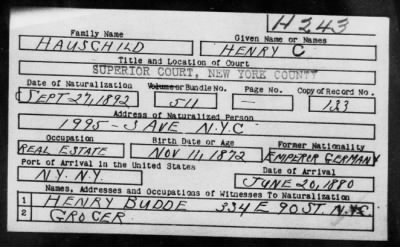 H243
Family Name Given Name or Names
HAUSCHILD HENRY C
Title and Location of Court
SUPERIOR COURT, NEW YORK COUNTY
Date of Naturalization Volume or Bundle No. Page No. Copy of Record No.
SEPT-27, 1892 511 — 133
Address of Naturalized Person
1995-3 AVE N.Y.C
Occupation Birth Date or Age Former Nationality
REAL ESTATE NOV 11, 1872 EMPEROR GERMANY
Port of Arrival in the United States Date of Arrival
N.Y. N.Y. JUNE 20, 1880
Names, Addresses and Occupations of Witnesses To Naturalization
1 HENRY BUDDE 334 E 90 ST. N.Y.C
2 GROCER